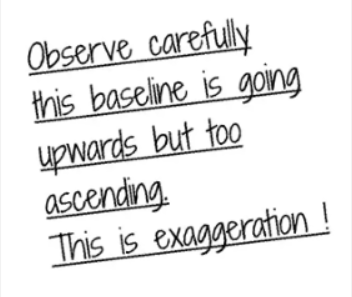 Observe carefully
this baseline is going
upwards but too
ascending.
This is exaggeration !